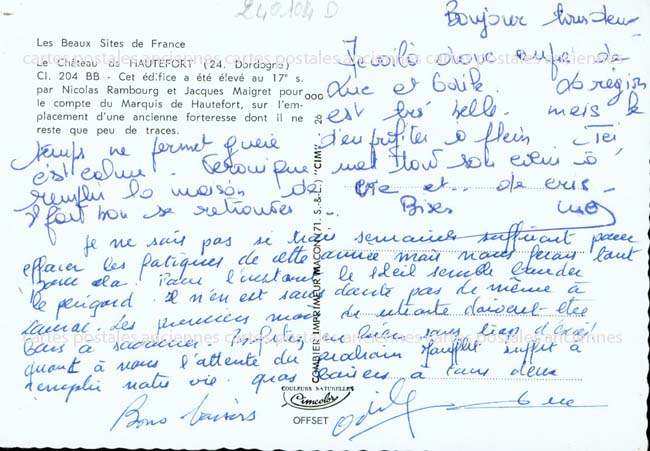 240104 D
Bonjour
Les Beaux Sites de France
Le Château de HAUTEFORT (24, Dordogne)
Cl. 204 BB - Cet édifice a été élevé au 17e s.
par Nicolas Rambourg et Jacques Maigret pour
le compte du Marquis de Hautefort, sur l'em-
placement d'une ancienne forteresse dont il ne
reste que peu de traces.
cartes postales anciennes cartes postales anciennes cartes postales anciennes
Luc et Odile. La région
est très belle. mais le
temps ne permet guère d'en profiter à plein. Ici
est calme. Véronique met tout son à
remplir la maison de vie et .. de cris.
Il fait bon se retrouver. Bises
Je ne sais pas si trois semaines suffiront pour
effacer les fatigues de cette année mais nous ferons tout
pour cela. Pour l'instant le soleil semble bouder
le périgord. Il n'en est sans doute pas de même à
Les premiers mois de doivent être
bons à savourer. Profitez en bien sans d'excès
quant à nous l'attente du prochain suffit à
remplir notre vie. gros baisers à tous deux
Bons baisers
Odile
Luc
COMBIER IMPRIMEUR MACON (71. S.-&-L.) "CIM"
26 000
COULEURS NATURELLES
Cimcolor
OFFSET